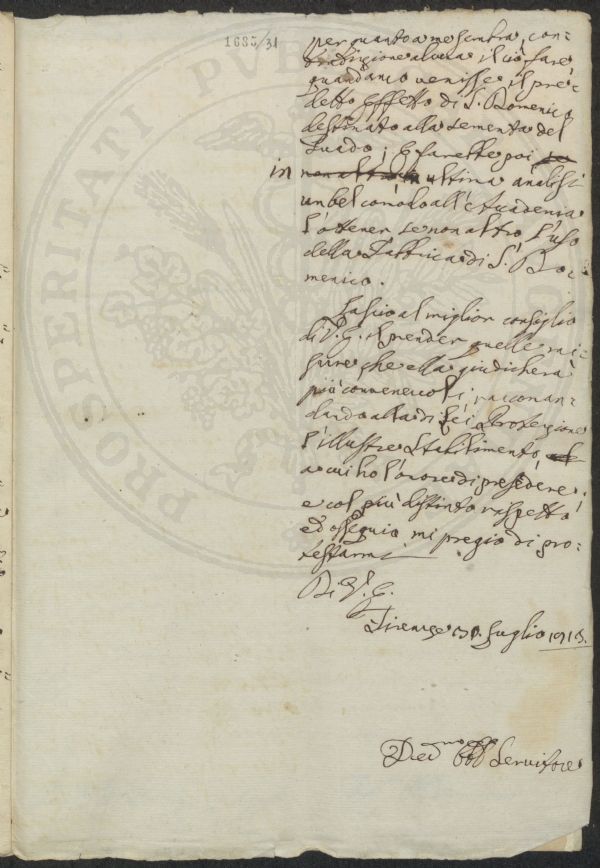 1685/31
per quanto a me sembra, con=
tradizione alcuna il ciò fare
quand'anco venisse il pre=
detto Effetto di S. Domenico
destinato alla sementa del
Guado; e sarebbe poi
in ultima analisi
un bel comodo all'Accademia
l'ottener se non altro l'uso
della Fabbrica di S. Do=
menico.
Lascio al miglior consiglio
di V. E. il prender quelle mi=
sure che ella giudicherà
più convenevoli; raccoman=
dando alla di lei Protezione
l'illustre Stabilimento,
a cui ho l'onore di presedere;
e col più distinto rispetto
ed ossequio mi pregio di pro=
testarmi
Di V. E.
Firenze 30. Luglio 1813.
Dev.mo Obb. Servitore
PROSPERITATI PVB